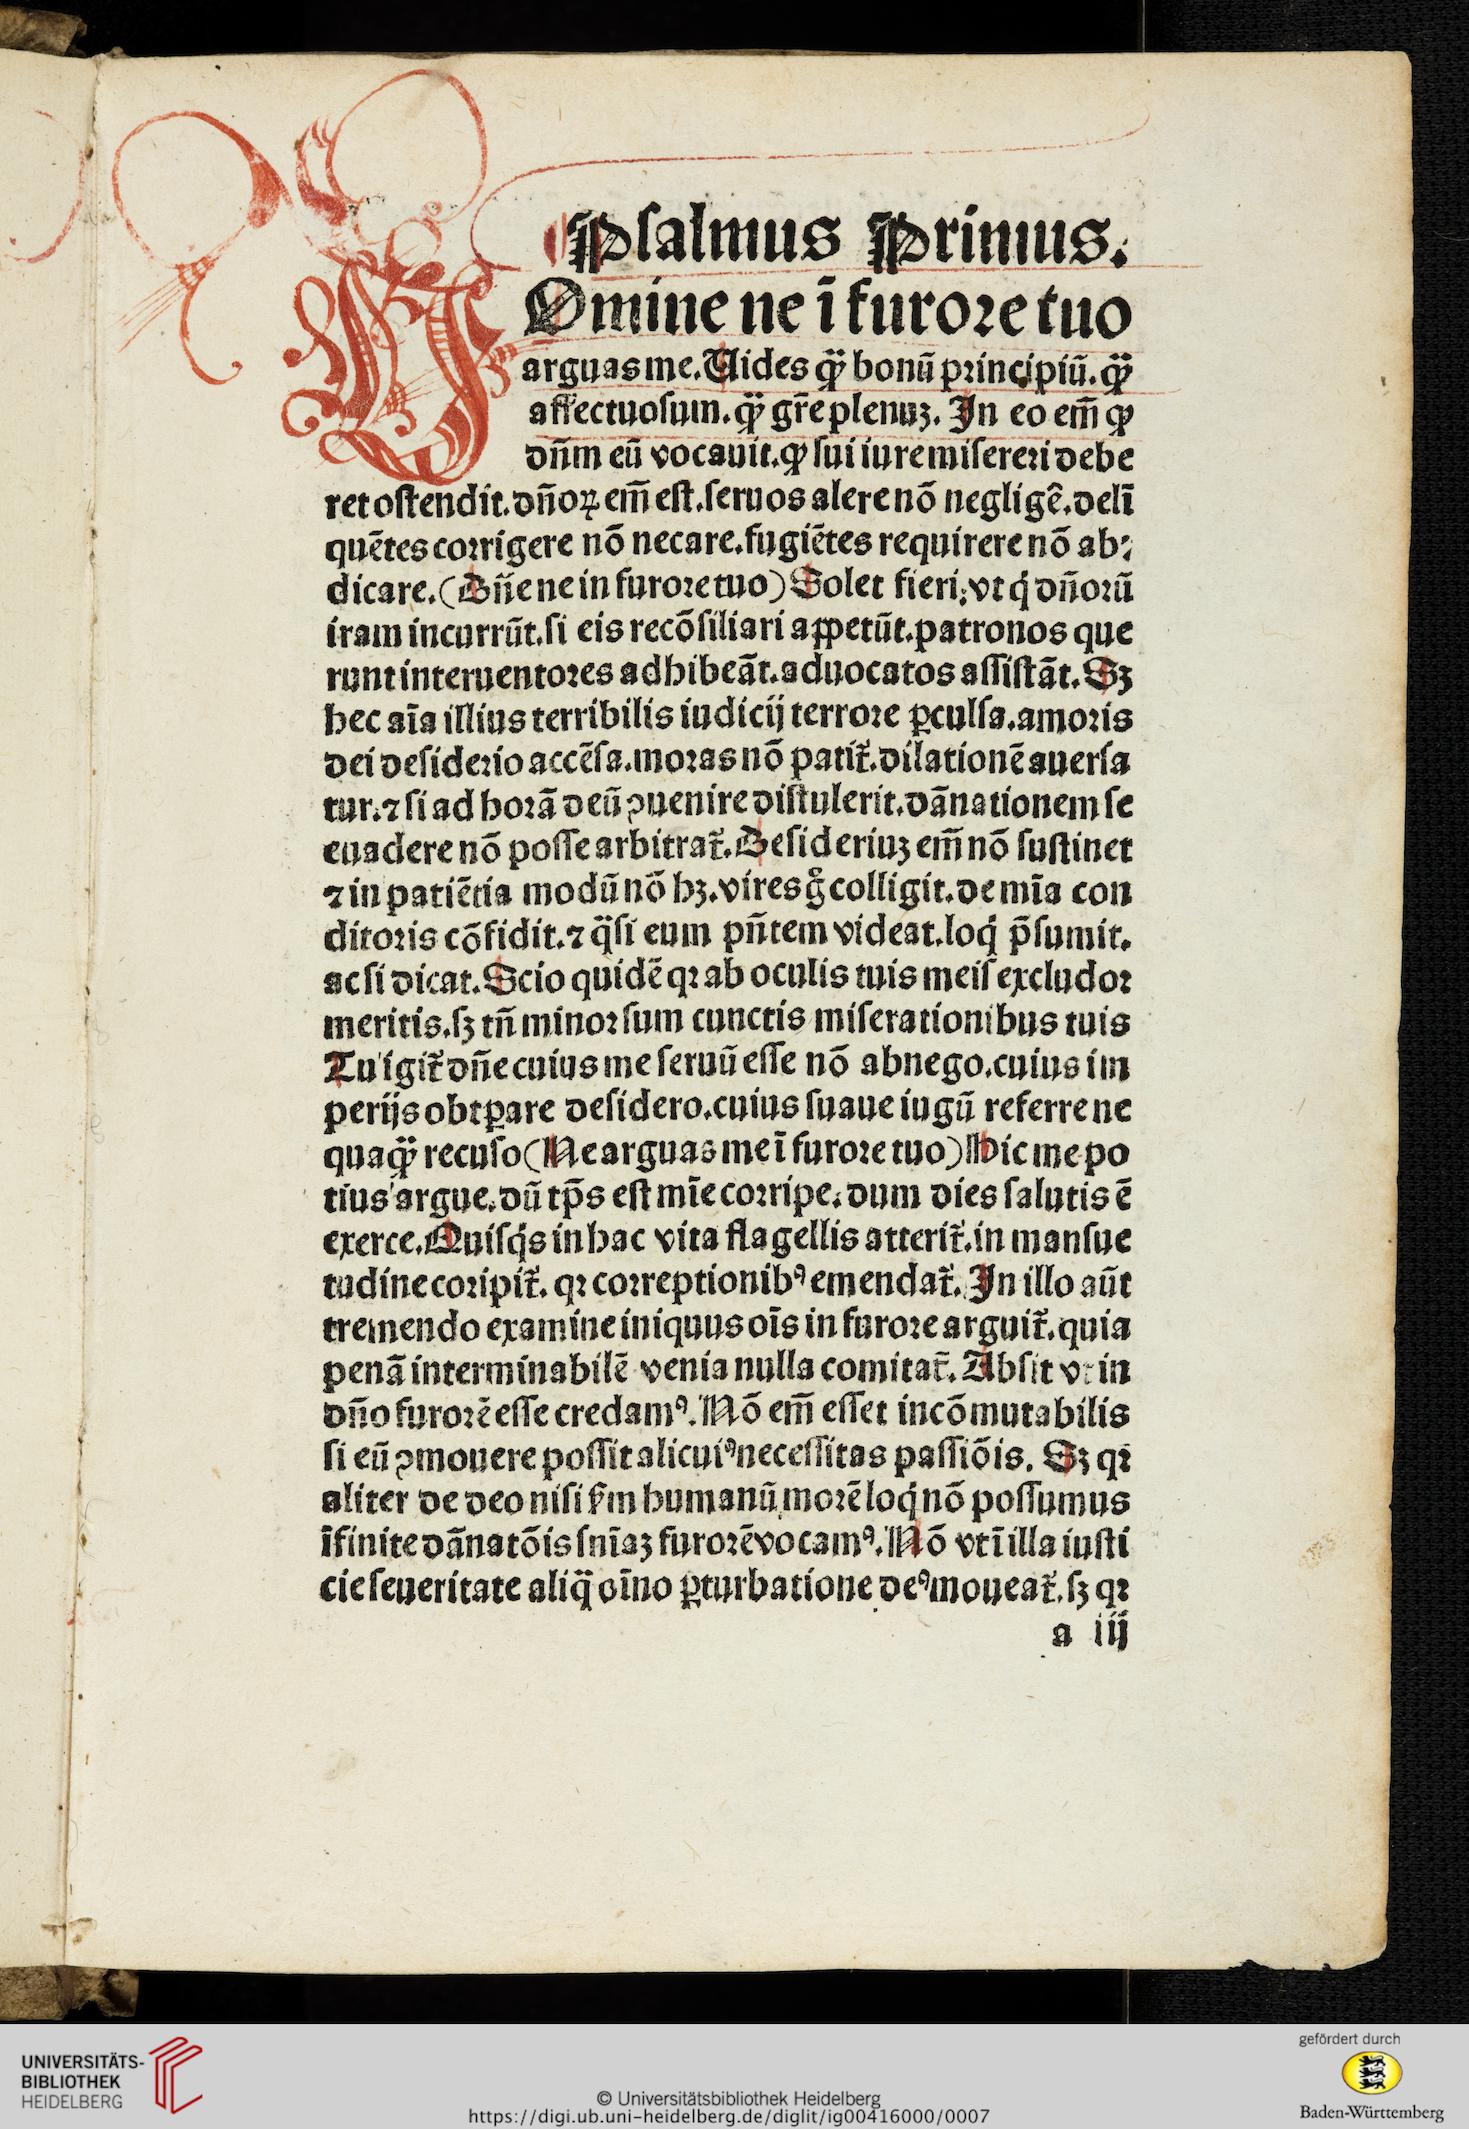 Psalmus Primus.
DOmine ne ī furore tuo
arguas me. Uides qꝫ̈ bonū principiū. qꝫ̈
affectuosum. qꝫ̈ gr̄e plenuꝫ. In eo em̄ ꝙ
dn̄m eū vocauit. ꝙ sui iure misereri debe
ret ostendit. dn̄oꝝ em̄ est. seruos alere nō negligē. delī
quētes corrigere nō necare. fugiētes requirere nō ab⸗
dicare. (Dn̄e ne in furore tuo) Solet fieri, vt q̇ dn̄orū
iram incurrūt. si eis recōsiliari appetūt. patronos que
runt interuentores adhibeāt. aduocatos assistāt. Sꝫ
hec aīa illius terribilis iudicij terrore ꝑculsa. amoris
dei desiderio accēsa. moras nō patit̄. dilationē auersa
tur. ⁊ si ad horā deū ꝯuenire distulerit. dānationem se
euadere nō posse arbitrat̄. Desideriuꝫ em̄ nō sustinet
⁊ in patiētia modū nō hꝫ. vires gͦ colligit. de mīa con
ditoris cōfidit. ⁊ q̈si eum pn̄tem videat. loq̇ p̄sumit.
ac si dicat. Scio quidē qꝛ ab oculis tuis meis excludor
meritis. sꝫ tn̄ minor sum cunctis miserationibus tuis
Tu igit̄ dn̄e cuius me seruū esse nō abnego. cuius im
perijs obtꝑare desidero. cuius suaue iugū referre ne
quaqꝫ̈ recuso (Ne arguas me ī furore tuo) Hic me po
tius argue. dū tp̄s est mīe corripe. dum dies salutis ē
exerce. Quisq̇s in hac vita flagellis atterit̄. in mansue
tudine coripit̄. qꝛ correptionibꝰ emendat̄. In illo aūt
tremendo examine iniquus oīs in furore arguit̄. quia
penā interminabilē venia nulla comitat̄. Absit vt in
dn̄o furorē esse credamꝰ. Nō em̄ esset incōmutabilis
si eū ꝯmouere possit alicuiꝰ necessitas passiōis. Sꝫ qꝛ
aliter de deo nisi ẜm humanū morē loq̇ nō possumus
īfinite dānatōis snīaꝫ furorē vocamꝰ. Nō vt ī illa iusti
cie seueritate aliq̈ oīno ꝑturbatione deꝰ moueat̄. sꝫ qꝛ
a iij
UNIVERSITÄTS-
BIBLIOTHEK
HEIDELBERG
© Universitätsbibliothek Heidelberg
https://digi.ub.uni-heidelberg.de/diglit/ig00416000/0007
gefördert durch
Baden-Württemberg